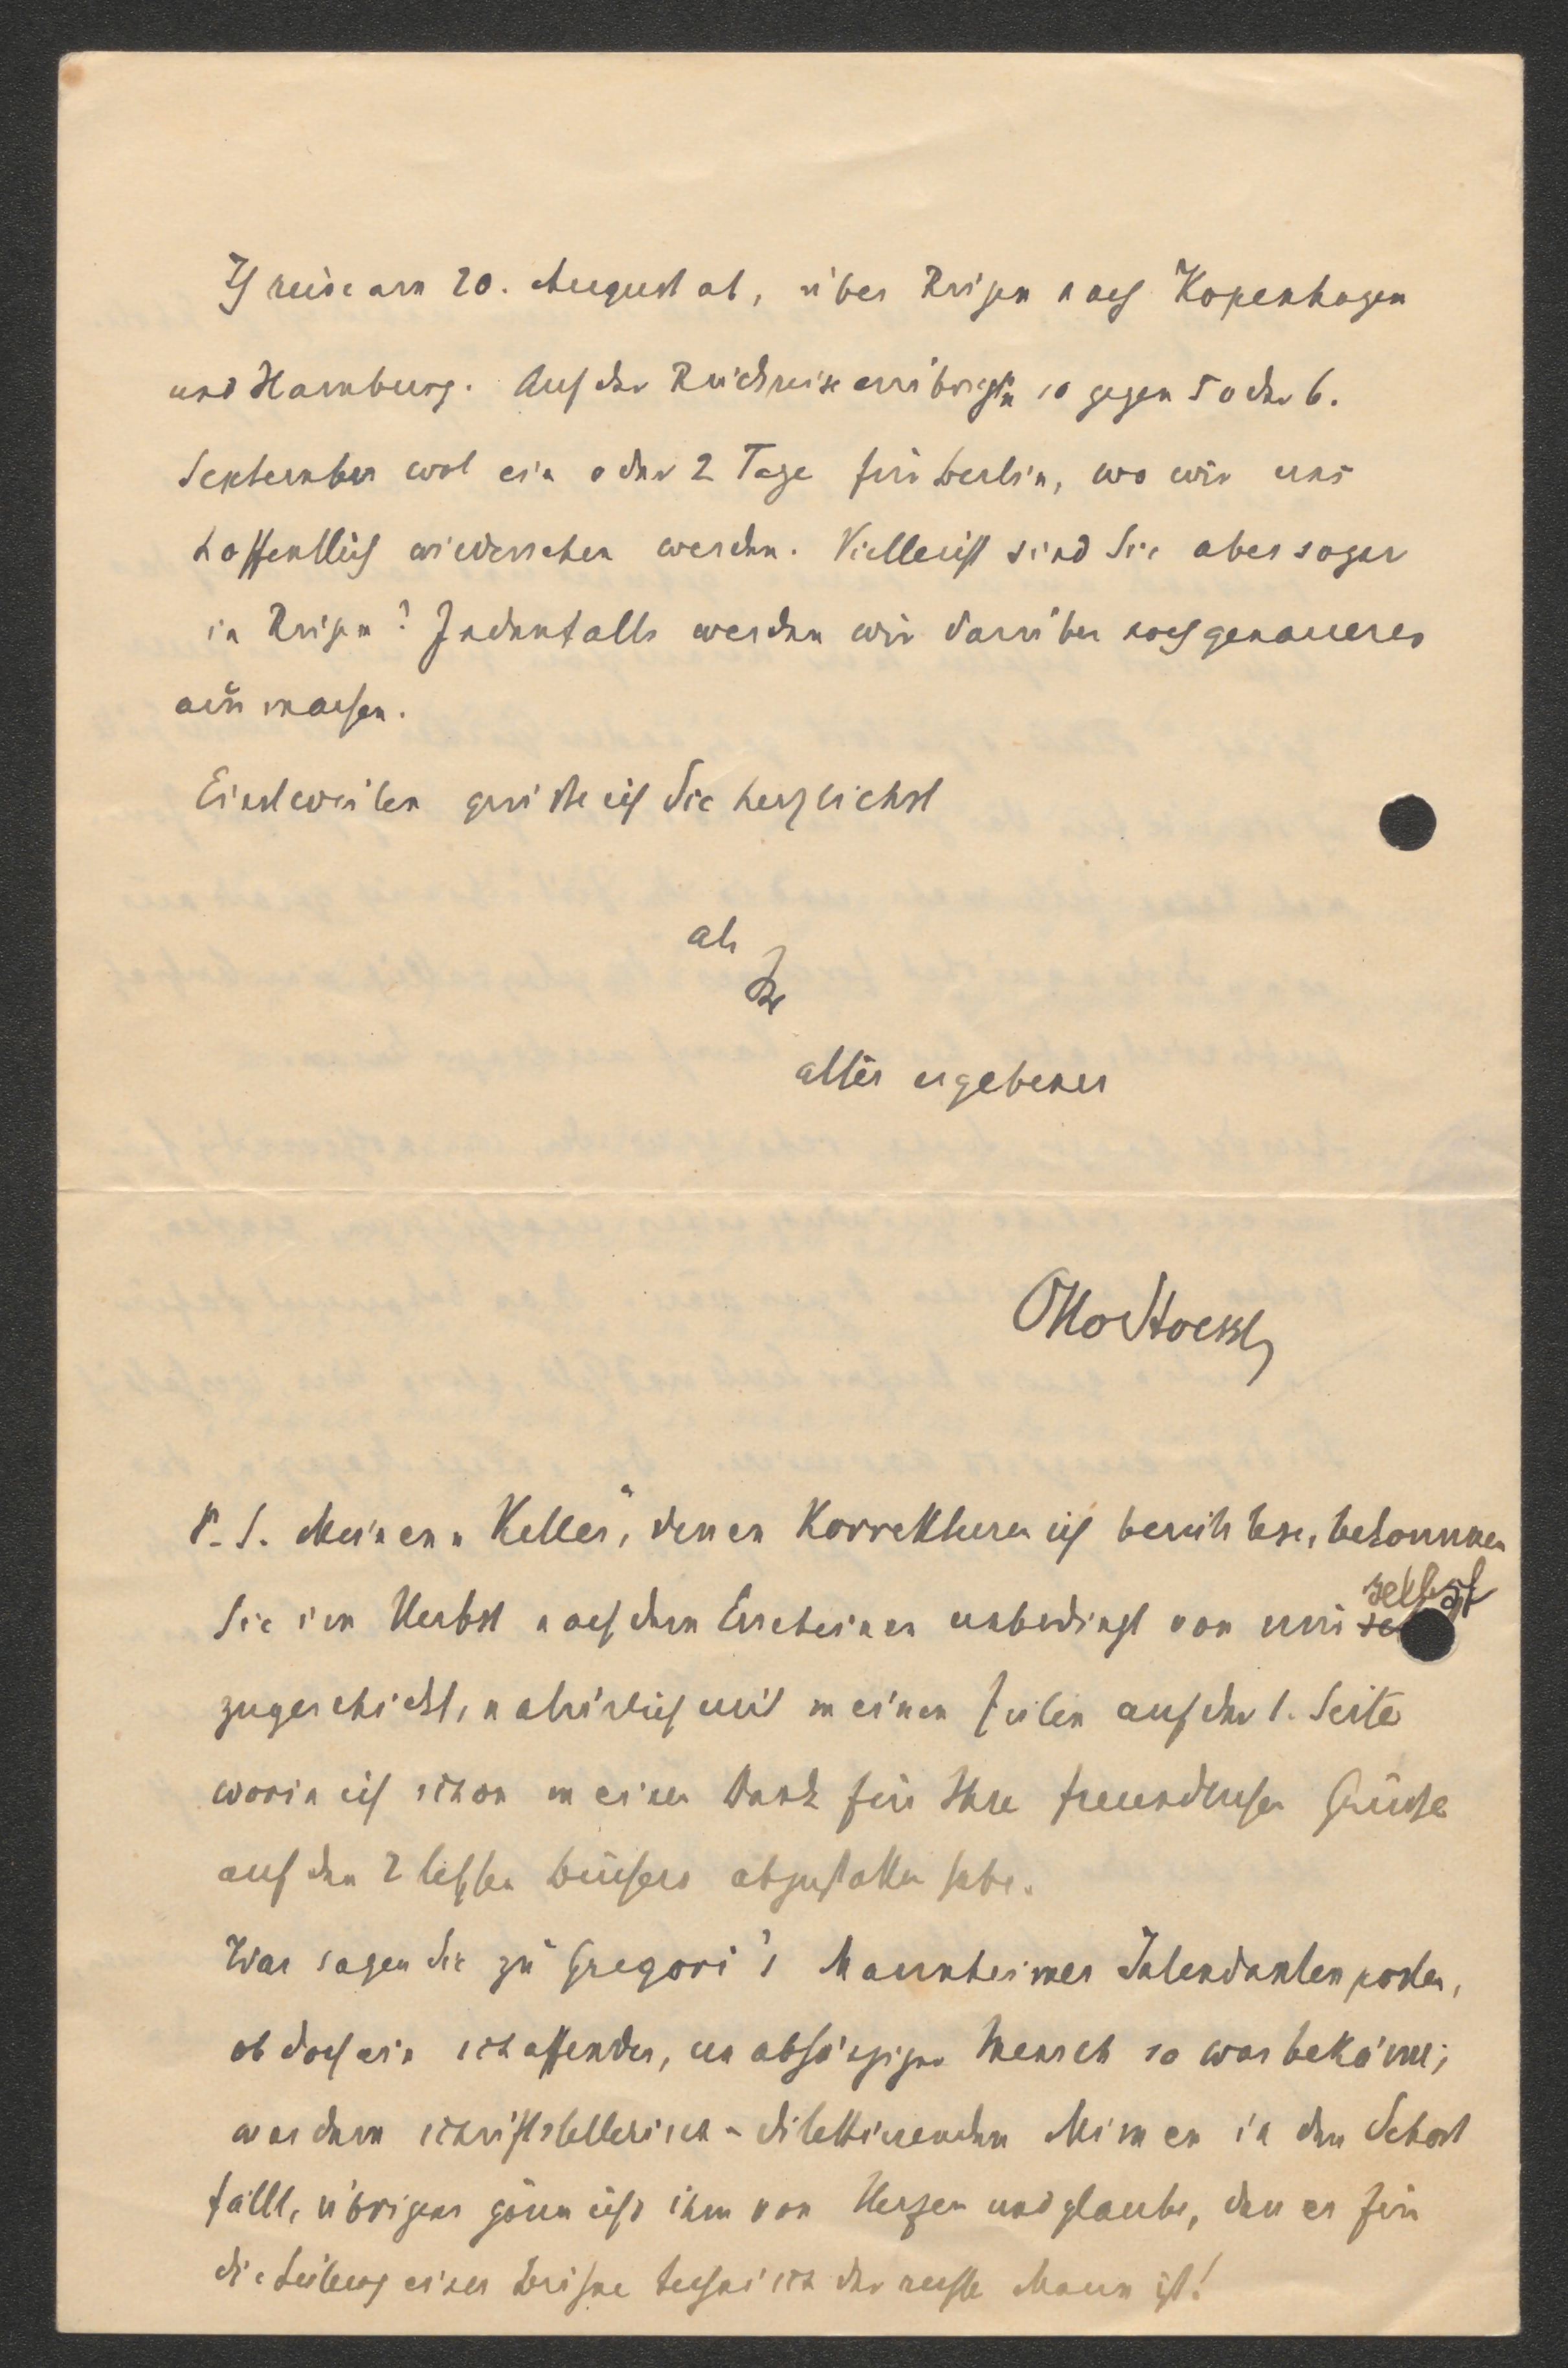 Ich reise am 20. August ab, über Rügen nach Kopenhagen
und Hamburg. Auf der Rückreise erübrigten so gegen 5 oder 6.
September wol ein oder 2 Tage für Berlin, wo wir uns
hoffentlich wiedersehen werden. Vielleicht sind Sie aber sogar
in Rügen? Jedenfalls werden wir darüber noch genaueres
ausmachen.
Einstweilen grüße ich Sie herzlichst
als
Ihr
alter ergebener
Otto Stoessl
P. S. Meinen „Keller", dessen Korrekturen ich bereits lese, bekommen
selbst
Sie im Herbst nach dem Erscheinen unbedingt von mir
zugeschickt, natürlich mit meinen Zeilen auf der 1. Seite
worin ich schon meinen Dank für Ihre freundlichen Grüße
auf den 2 letzten Büchern abzustatten habe.
Was sagen Sie zu Gregori's Mannheimer Intendantenposten,
ob doch ein schaffender, unabhängiger Mensch so was bekäme;
was dem schriftstellerisch-dilettierenden Mimen in den Schoß
fällt, übrigens gönn ichs ihm von Herzen und glaube, dass er für
die Leitung einer Bühne technisch der rechte Mann ist!